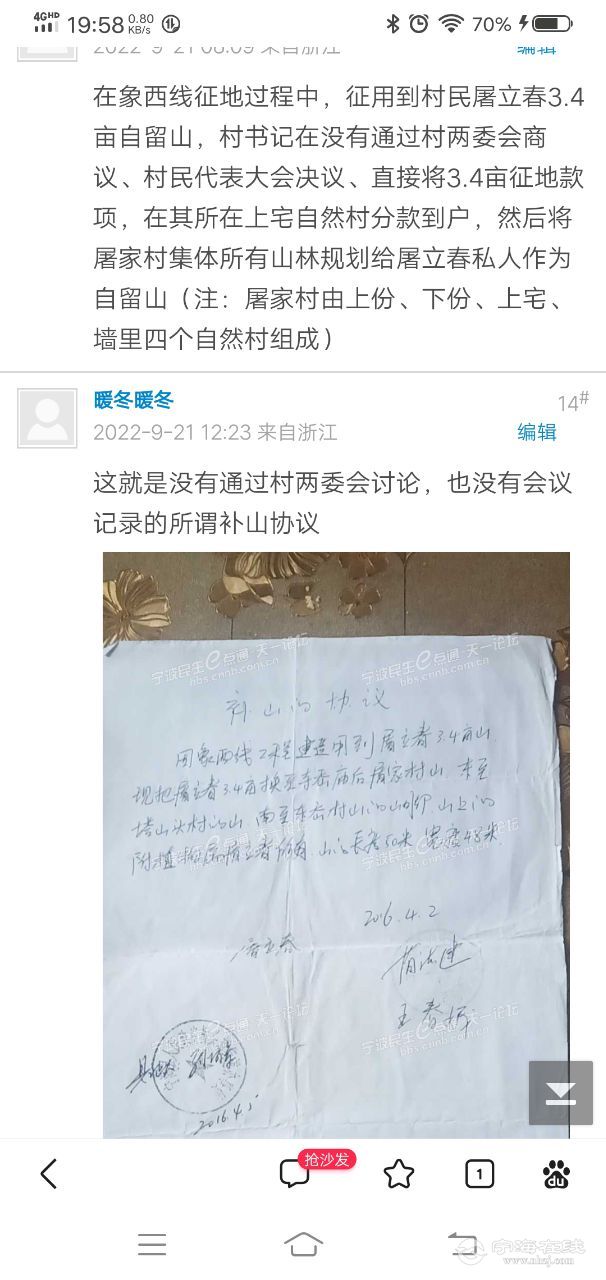 4G HD 19:58 0.80 KB/s 70%
2022-9-21 08:09 来自浙江 编辑
在象西线征地过程中，征用到村民屠立春3.4
亩自留山，村书记在没有通过村两委会商
议、村民代表大会决议、直接将3.4亩征地款
项，在其所在上宅自然村分款到户，然后将
屠家村集体所有山林规划给屠立春私人作为
自留山（注：屠家村由上份、下份、上宅、
墙里四个自然村组成）
暖冬暖冬 14#
2022-9-21 12:23 来自浙江 编辑
这就是没有通过村两委会讨论，也没有会议
记录的所谓补山协议
宁波民生e点通 天一论坛
bbs.cnnb.com.cn
山的协议
因象西线工程建造用到屠立春3.4亩山
现把屠立春3.4亩换至东岙庙后屠家村山
塔山头村的山，南至东岙村山的山脚，山上的
附植物属屠立春所有，山的长度50米 宽度48米
2016.4.2
屠立春
王春
2016.4.5
抢沙发
1
du
宁海在线
www.nhzj.com